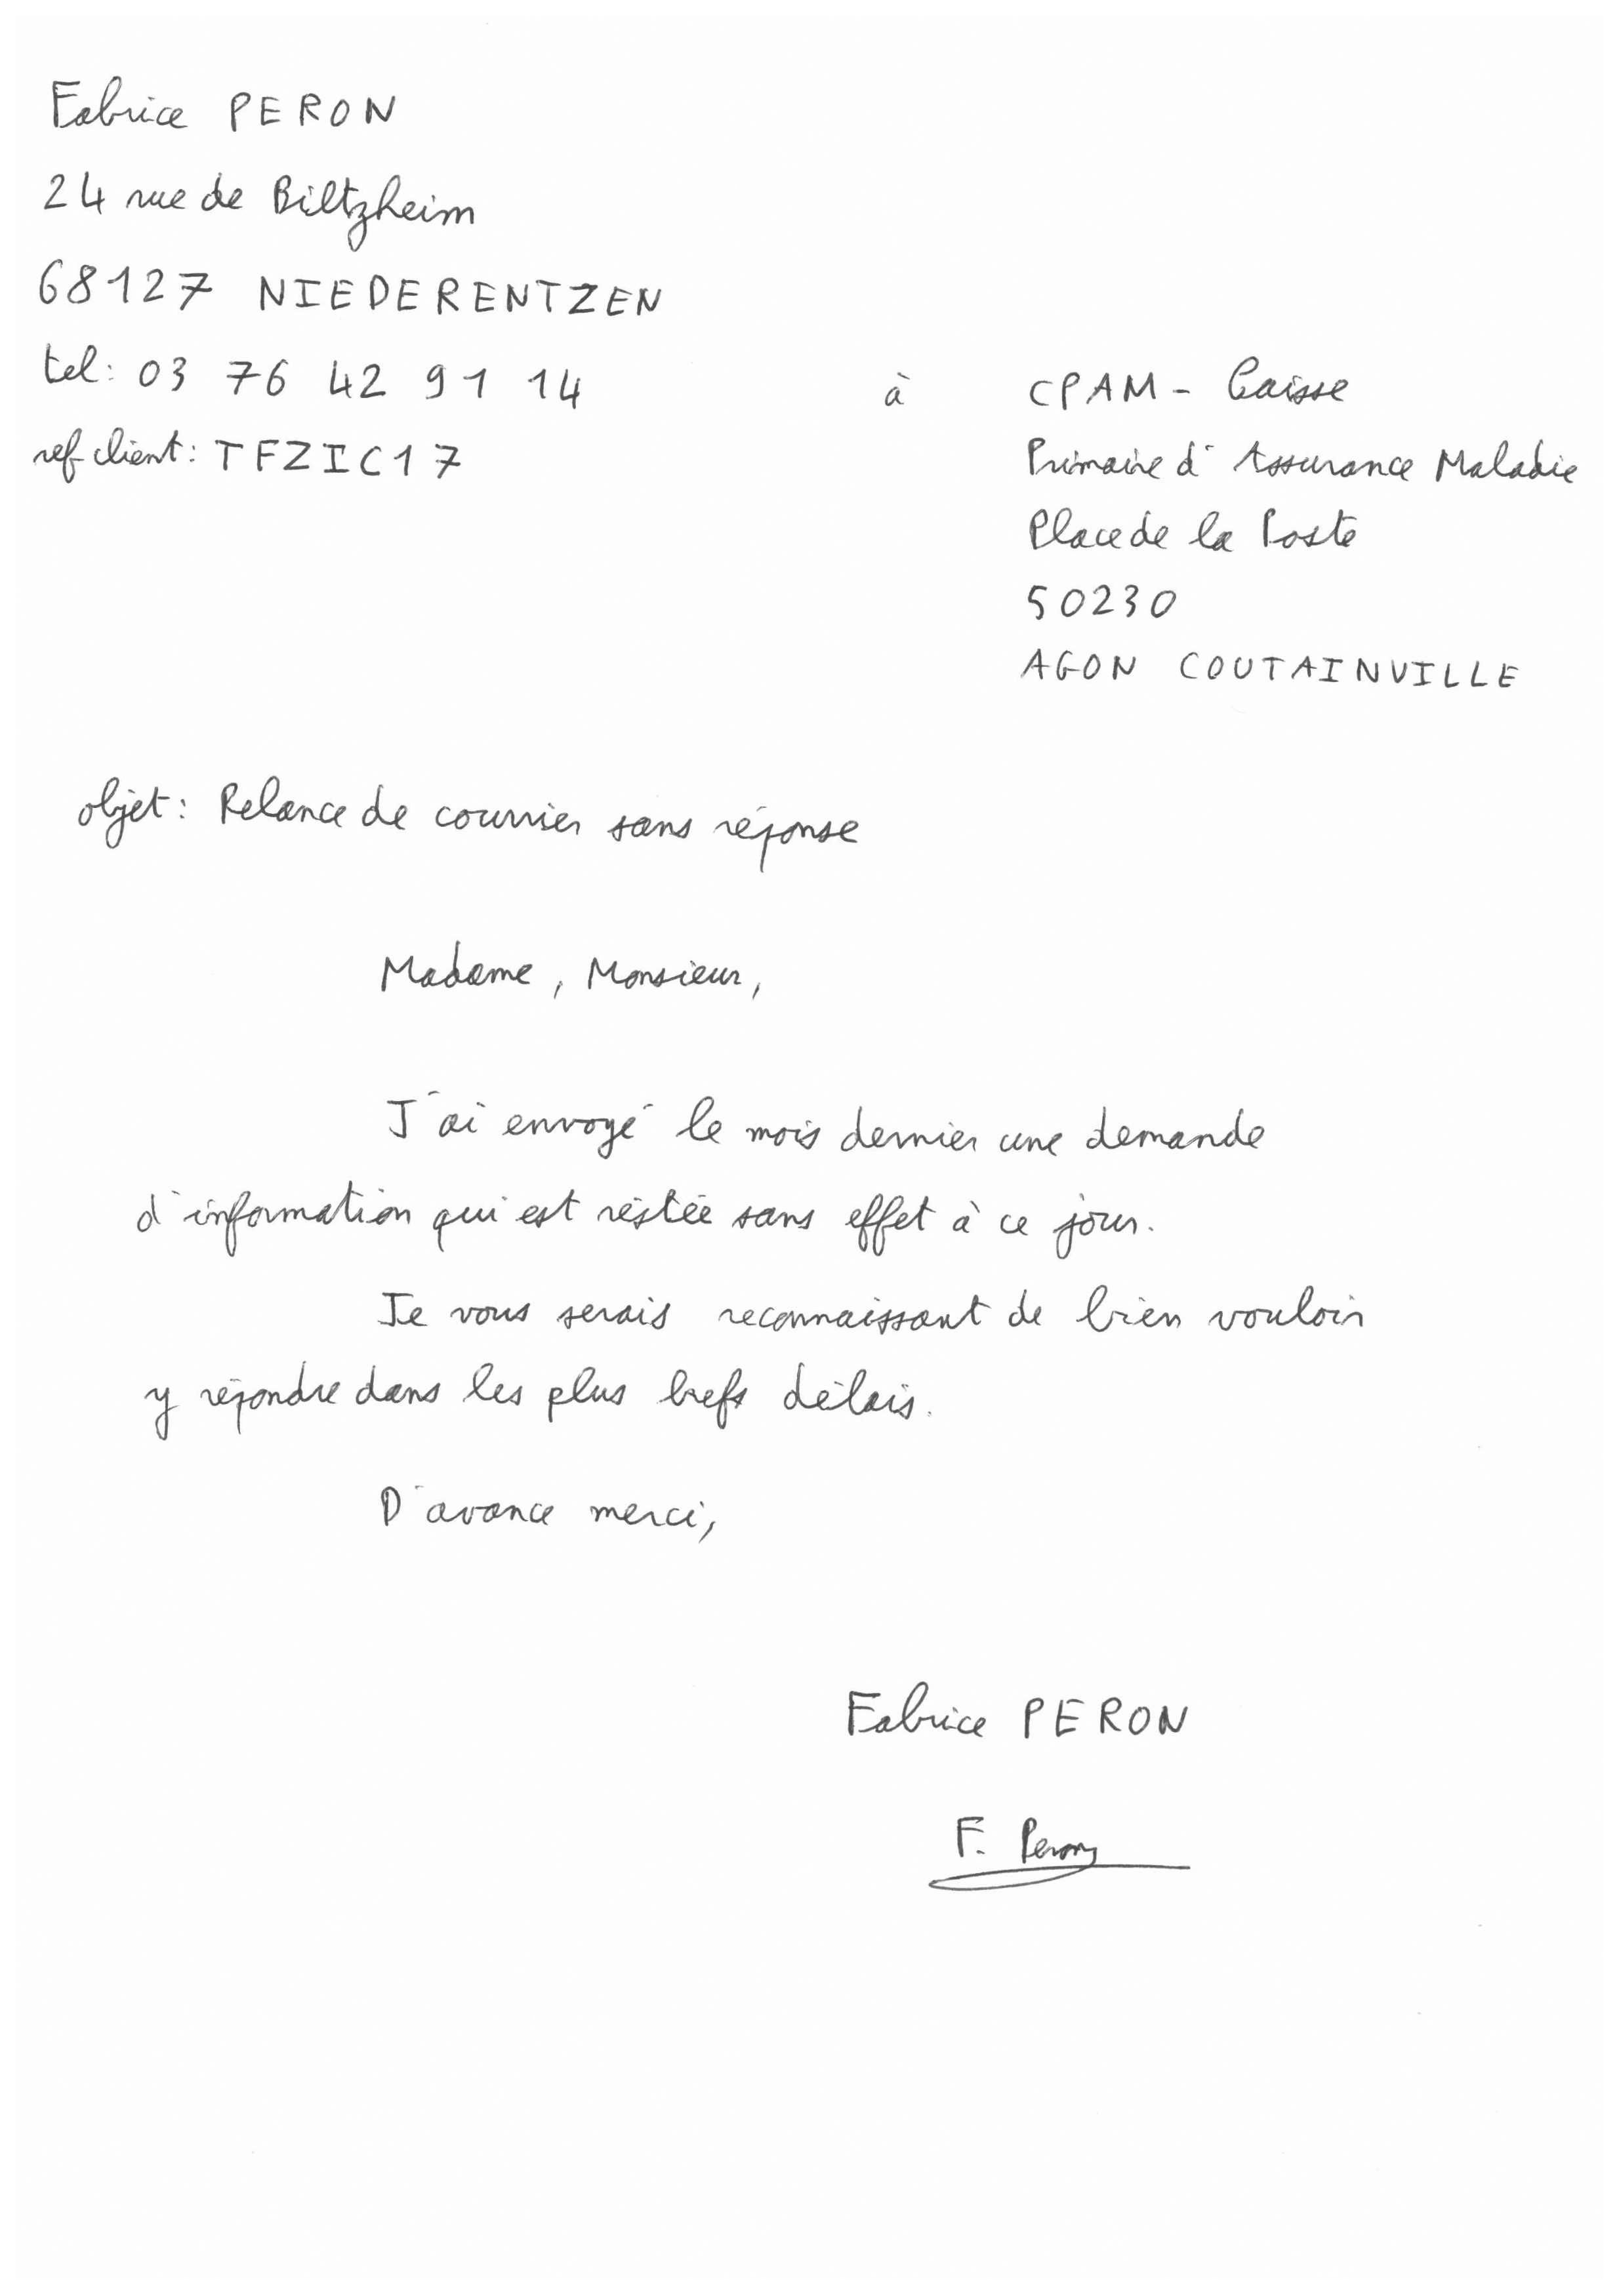 Fabrice PERON
24 rue de Biltzheim
68127 NIEDERENTZEN
tel: 03 76 42 91 14
ref client: TFZIC17
à CPAM - Caisse
Primaire d'Assurance Maladie
Place de la Poste
50230
AGON COUTAINVILLE
objet: Relance de courrier sans réponse
Madame, Monsieur,
J'ai envoyé le mois dernier une demande
d'information qui est réstée sans effet à ce jour.
Je vous serais reconnaissant de bien vouloir
y répondre dans les plus brefs délais.
D'avance merci,
Fabrice PERON
F. Peron